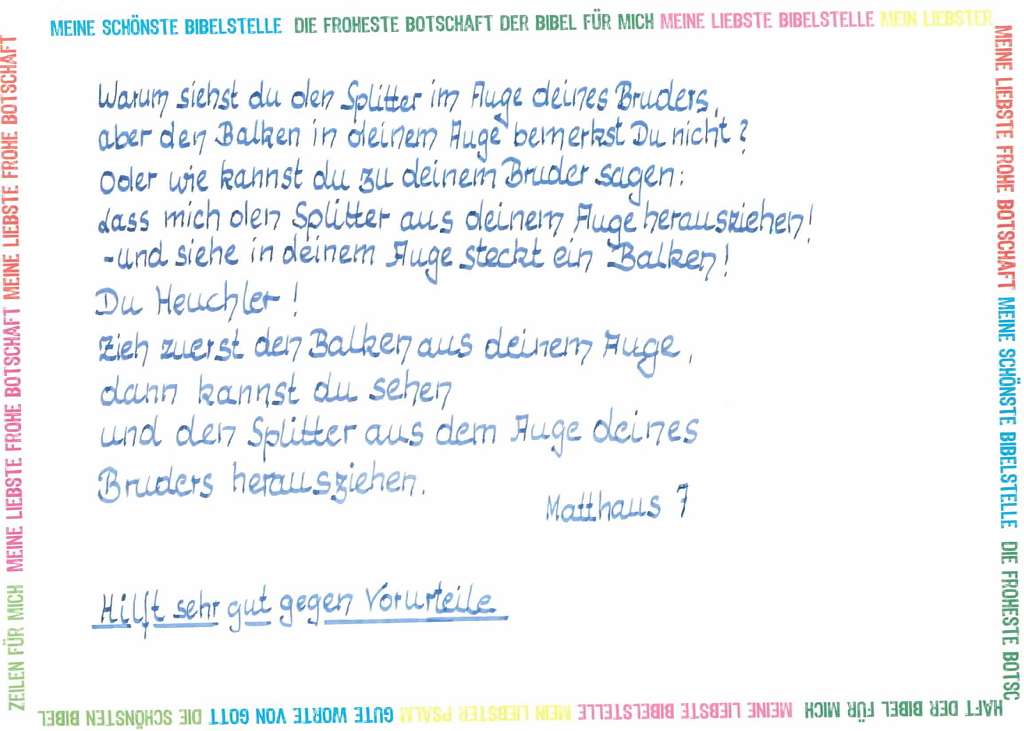 MEINE SCHÖNSTE BIBELSTELLE DIE FROHESTE BOTSCHAFT DER BIBEL FÜR MICH MEINE LIEBSTE BIBELSTELLE MEIN LIEBSTER
Warum siehst du den Splitter im Auge deines Bruders,
aber den Balken in deinem Auge bemerkst Du nicht?
Oder wie kannst du zu deinem Bruder sagen:
dass mich den Splitter aus deinem Auge herausziehen!
-und siehe in deinem Auge steckt ein Balken!
Du Heuchler!
Zieh zuerst den Balken aus deinem Auge,
dann kannst du sehen
und den Splitter aus dem Auge deines
Bruders herausziehen.
Matthaus 7
Hilft sehr gut gegen Vorurteile
MEINE LIEBSTE FROHE BOTSCHAFT MEINE SCHÖNSTE BIBELSTELLE DIE FROHESTE BOTSC
HAFT DER BIBEL FÜR MICH MEINE LIEBSTE BIBELSTELLE MEIN LIEBSTER PSALM GUTE WORTE VON GOTT DIE SCHÖNSTEN BIBEL
ZEILEN FÜR MICH MEINE LIEBSTE FROHE BOTSCHAFT MEINE LIEBSTE FROHE BOTSCHAFT